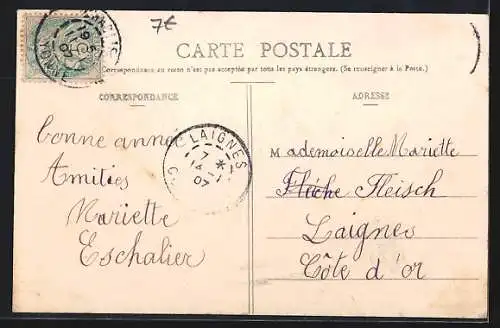 7€
CARTE POSTALE
Correspondance au recto n'est pas acceptée par tous les pays étrangers. (Se renseigner à la Poste)
CORRESPONDANCE
ADRESSE
bonne année
Amitiés
Mariette
Eschalier
LAIGNES
7 *
14 - 1
07
Mademoiselle Mariette
Flèche Fleisch
Laignes
Côte d'or